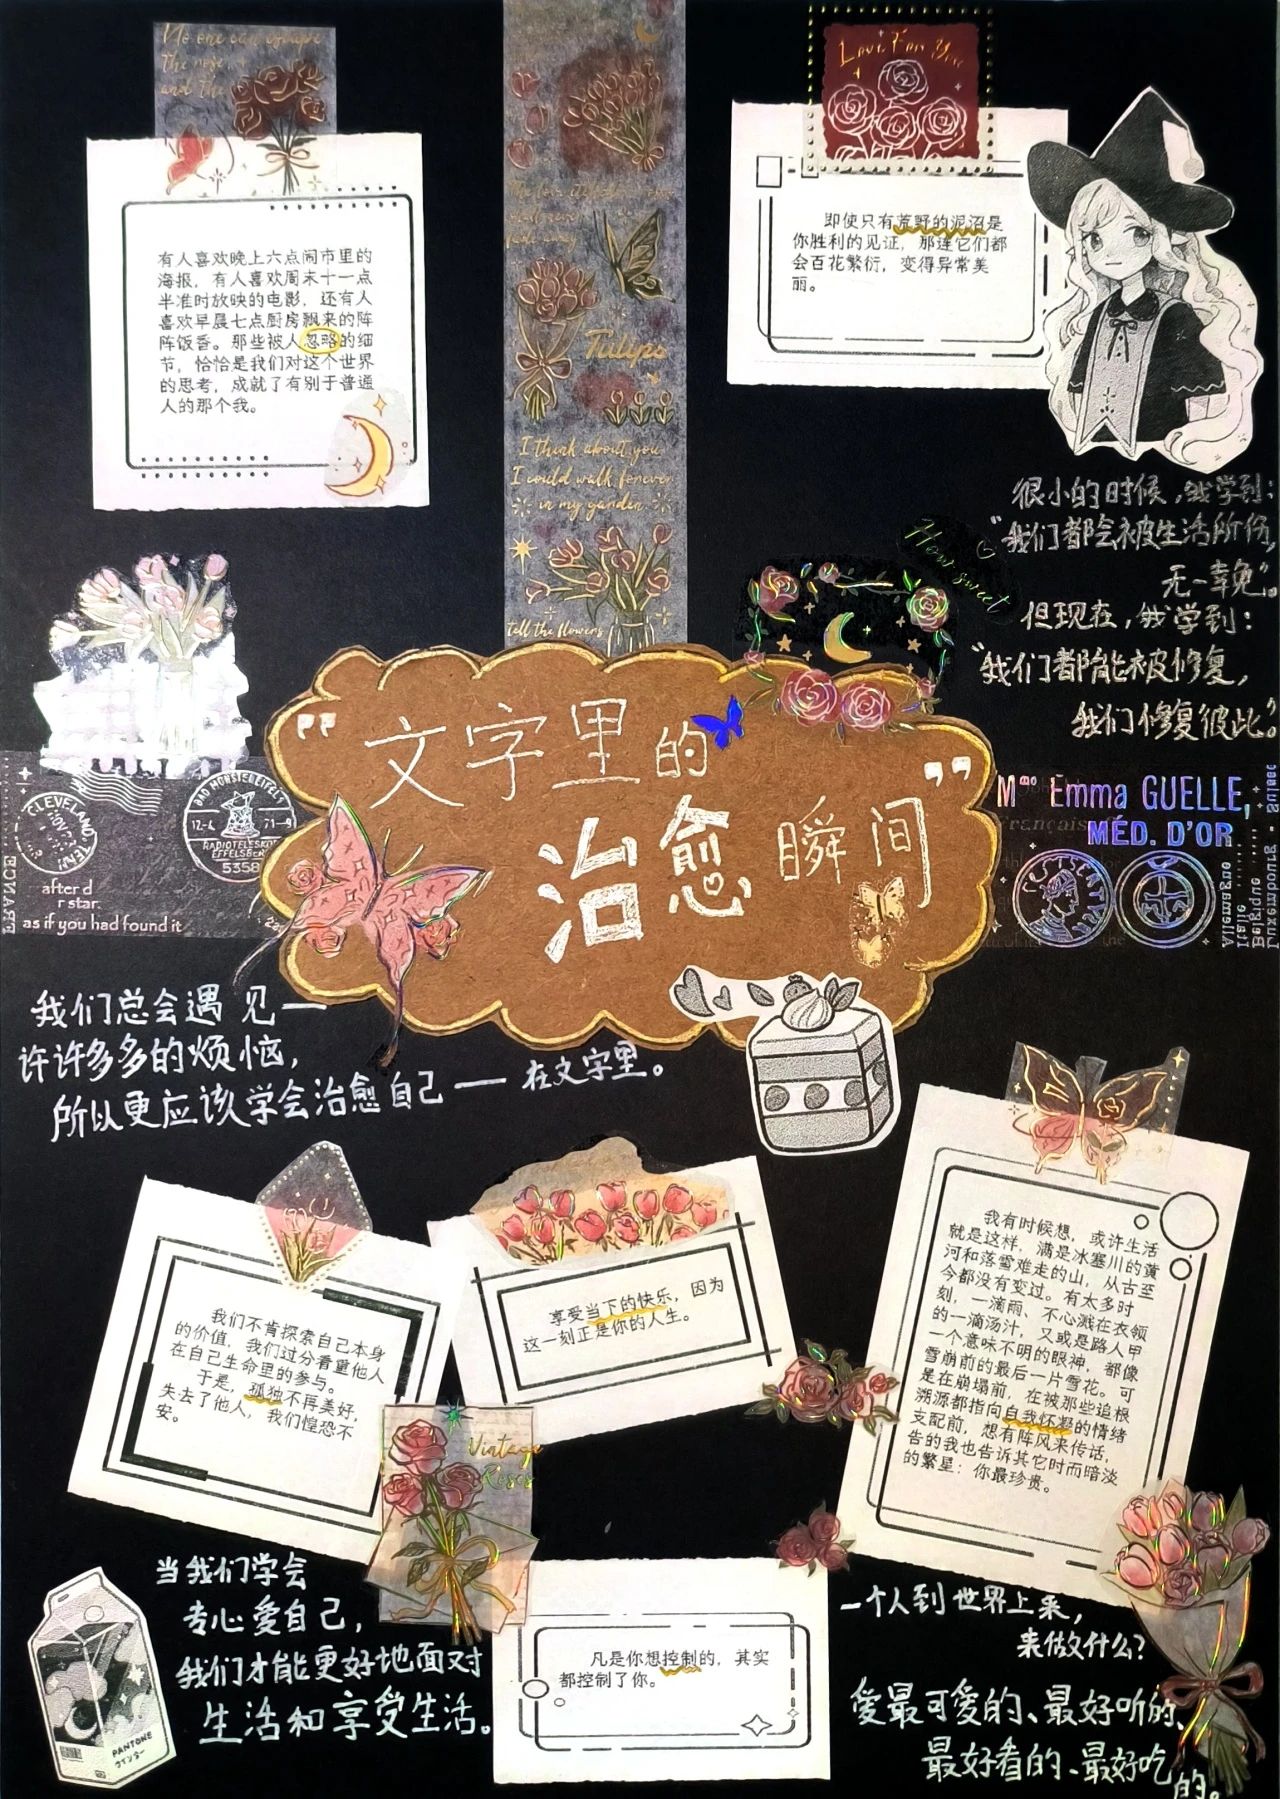 No one can escape
the rose,
and the
有人喜欢晚上六点闹市里的
海报，有人喜欢周末十一点
半准时放映的电影，还有人
喜欢早晨七点厨房飘来的阵
阵饭香。那些被人忽略的细
节，恰恰是我们对这个世界
的思考，成就了有别于普通
人的那个我。
Tulips
I think about you
I could walk forever
in my garden
tell the flowers
Love For You
即使只有荒野的泥沼是
你胜利的见证，那连它们都
会百花繁衍，变得异常美
丽。
很小的时候，我学到：
“我们都会被生活所伤，
无一幸免”。
但现在，我学到：
“我们都能被修复，
我们修复彼此。”
How sweet
“文字里的
治愈瞬间”
CLEVELAND, TENN.
BAD MÜNSTEREIFEL
12-4
71-9
RADIOTELESKOP
EFFELSBERG
5358
FRANCE
after d
r star.
as if you had found it
Mme Emma GUELLE,
MÉD. D'OR
Français
Allemagne
Italie
Belgique
Luxembourg - Suisse
我们总会遇见—
许许多多的烦恼，
所以更应该学会治愈自己 — 在文字里。
我们不肯探索自己本身
的价值，我们过分看重他人
在自己生命里的参与。
于是，孤独不再美好，
失去了他人，我们惶恐不
安。
Vintage
Roses
享受当下的快乐，因为
这一刻正是你的人生。
我有时候想，或许生活
就是这样，满是冰塞川的黄
河和落雪难走的山，从古至
今都没有变过。有太多时
刻，一滴雨、不心溅在衣领
的一滴汤汁，又或是路人甲
一个意味不明的眼神，都像
雪崩前的最后一片雪花。可
是在崩塌前，在被那些追根
溯源都指向自我怀疑的情绪
支配前，想有阵风来传话，
告的我也告诉其它时而暗淡
的繁星：你最珍贵。
当我们学会
专心爱自己，
我们才能更好地面对
生活和享受生活。
PANTONE
凡是你想控制的，其实
都控制了你。
一个人到世界上来，
来做什么？
爱最可爱的、最好听的、
最好看的、最好吃的。